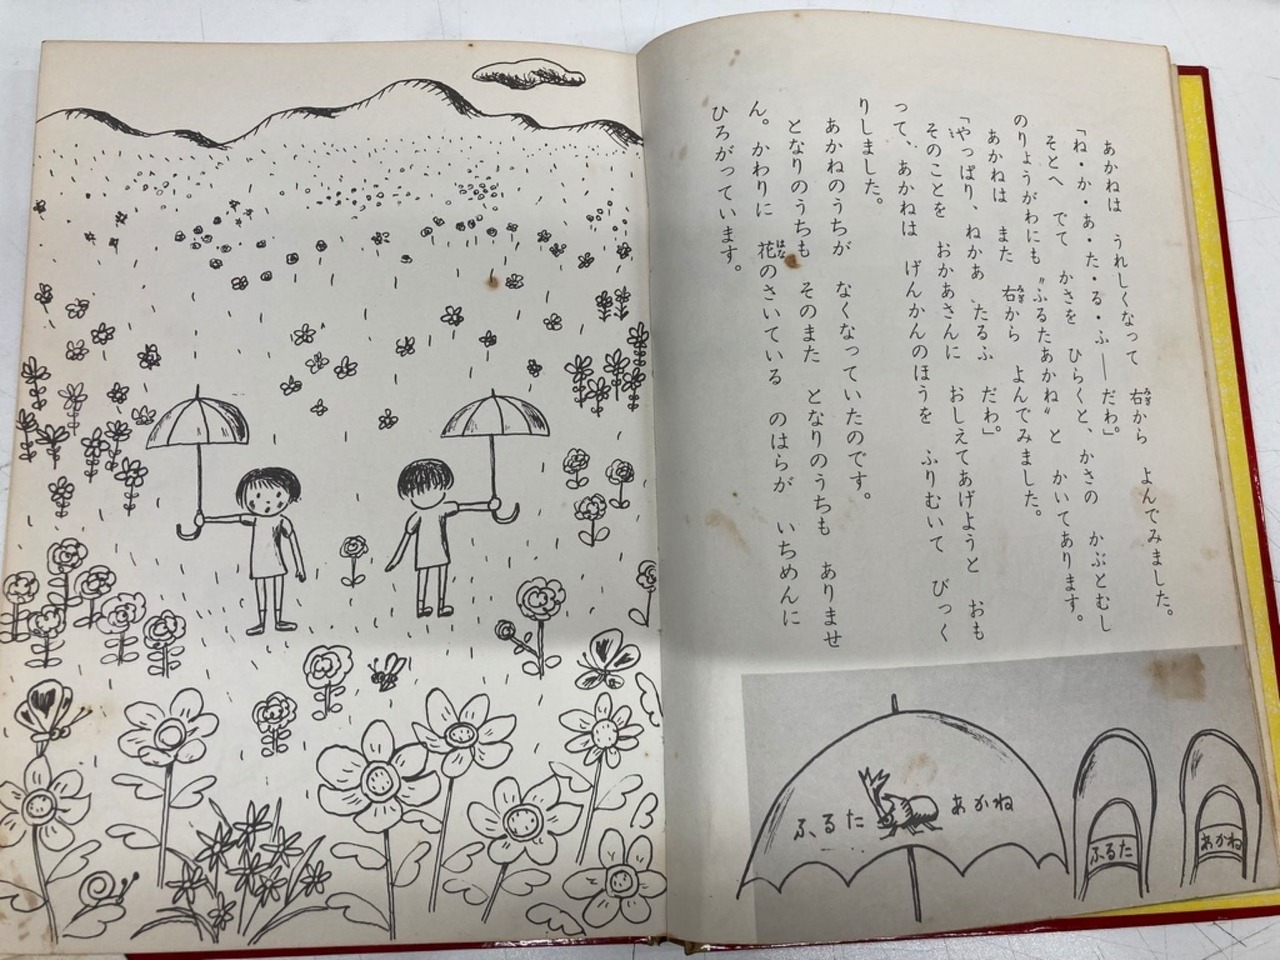 あかねは うれしくなって 右から よんでみました。
「ね・か・あ・た・る・ふ――だわ」
そとへ でて かさを ひらくと、かさの かぶとむし
のりょうがわにも〝ふるたあかね〟と かいてあります。
あかねは また 右から よんでみました。
「やっぱり、ねかあ たるふ だわ」
そのことを おかあさんに おしえてあげようと おも
って、あかねは げんかんのほうを ふりむいて びっく
りしました。
あかねのうちが なくなっていたのです。
となりのうちも そのまた となりのうちも ありませ
ん。かわりに 花のさいている のはらが いちめんに
ひろがっています。
ふるた あかね
ふるた
あかね